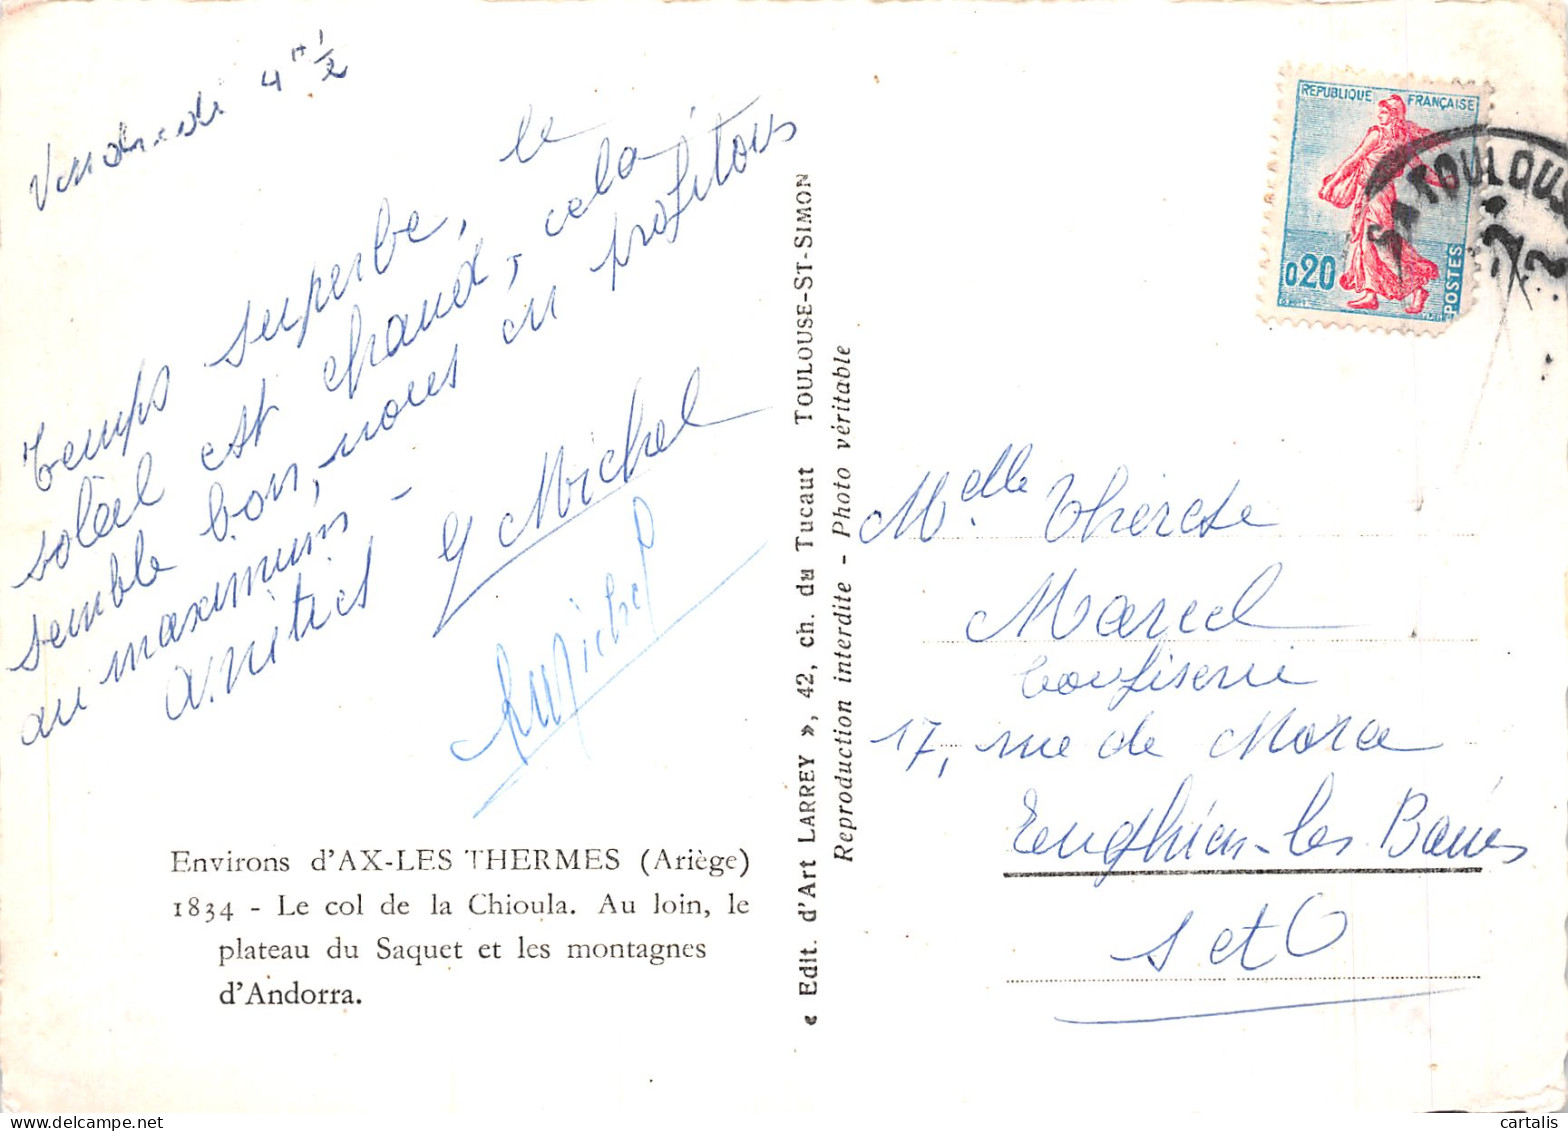 Vendredi 4 H 1/2
temps superbe, le
soleil est chaud, cela
semble bon, nous en profitons
au maximum -
Amitiés
Michel
Environs d'AX-LES THERMES (Ariège)
1834 - Le col de la Chioula. Au loin, le
plateau du Saquet et les montagnes
d'Andorra.
« Edit. d'Art LARREY », 42, ch. du Tucaut TOULOUSE-ST-SIMON
Reproduction interdite - Photo véritable
REPUBLIQUE FRANÇAISE
0,20
POSTES
TOULOUS
Melle Thérèse
Marcel
Confiserie
17, rue de Mora
Enghien-les Bains
S et O
cartalis